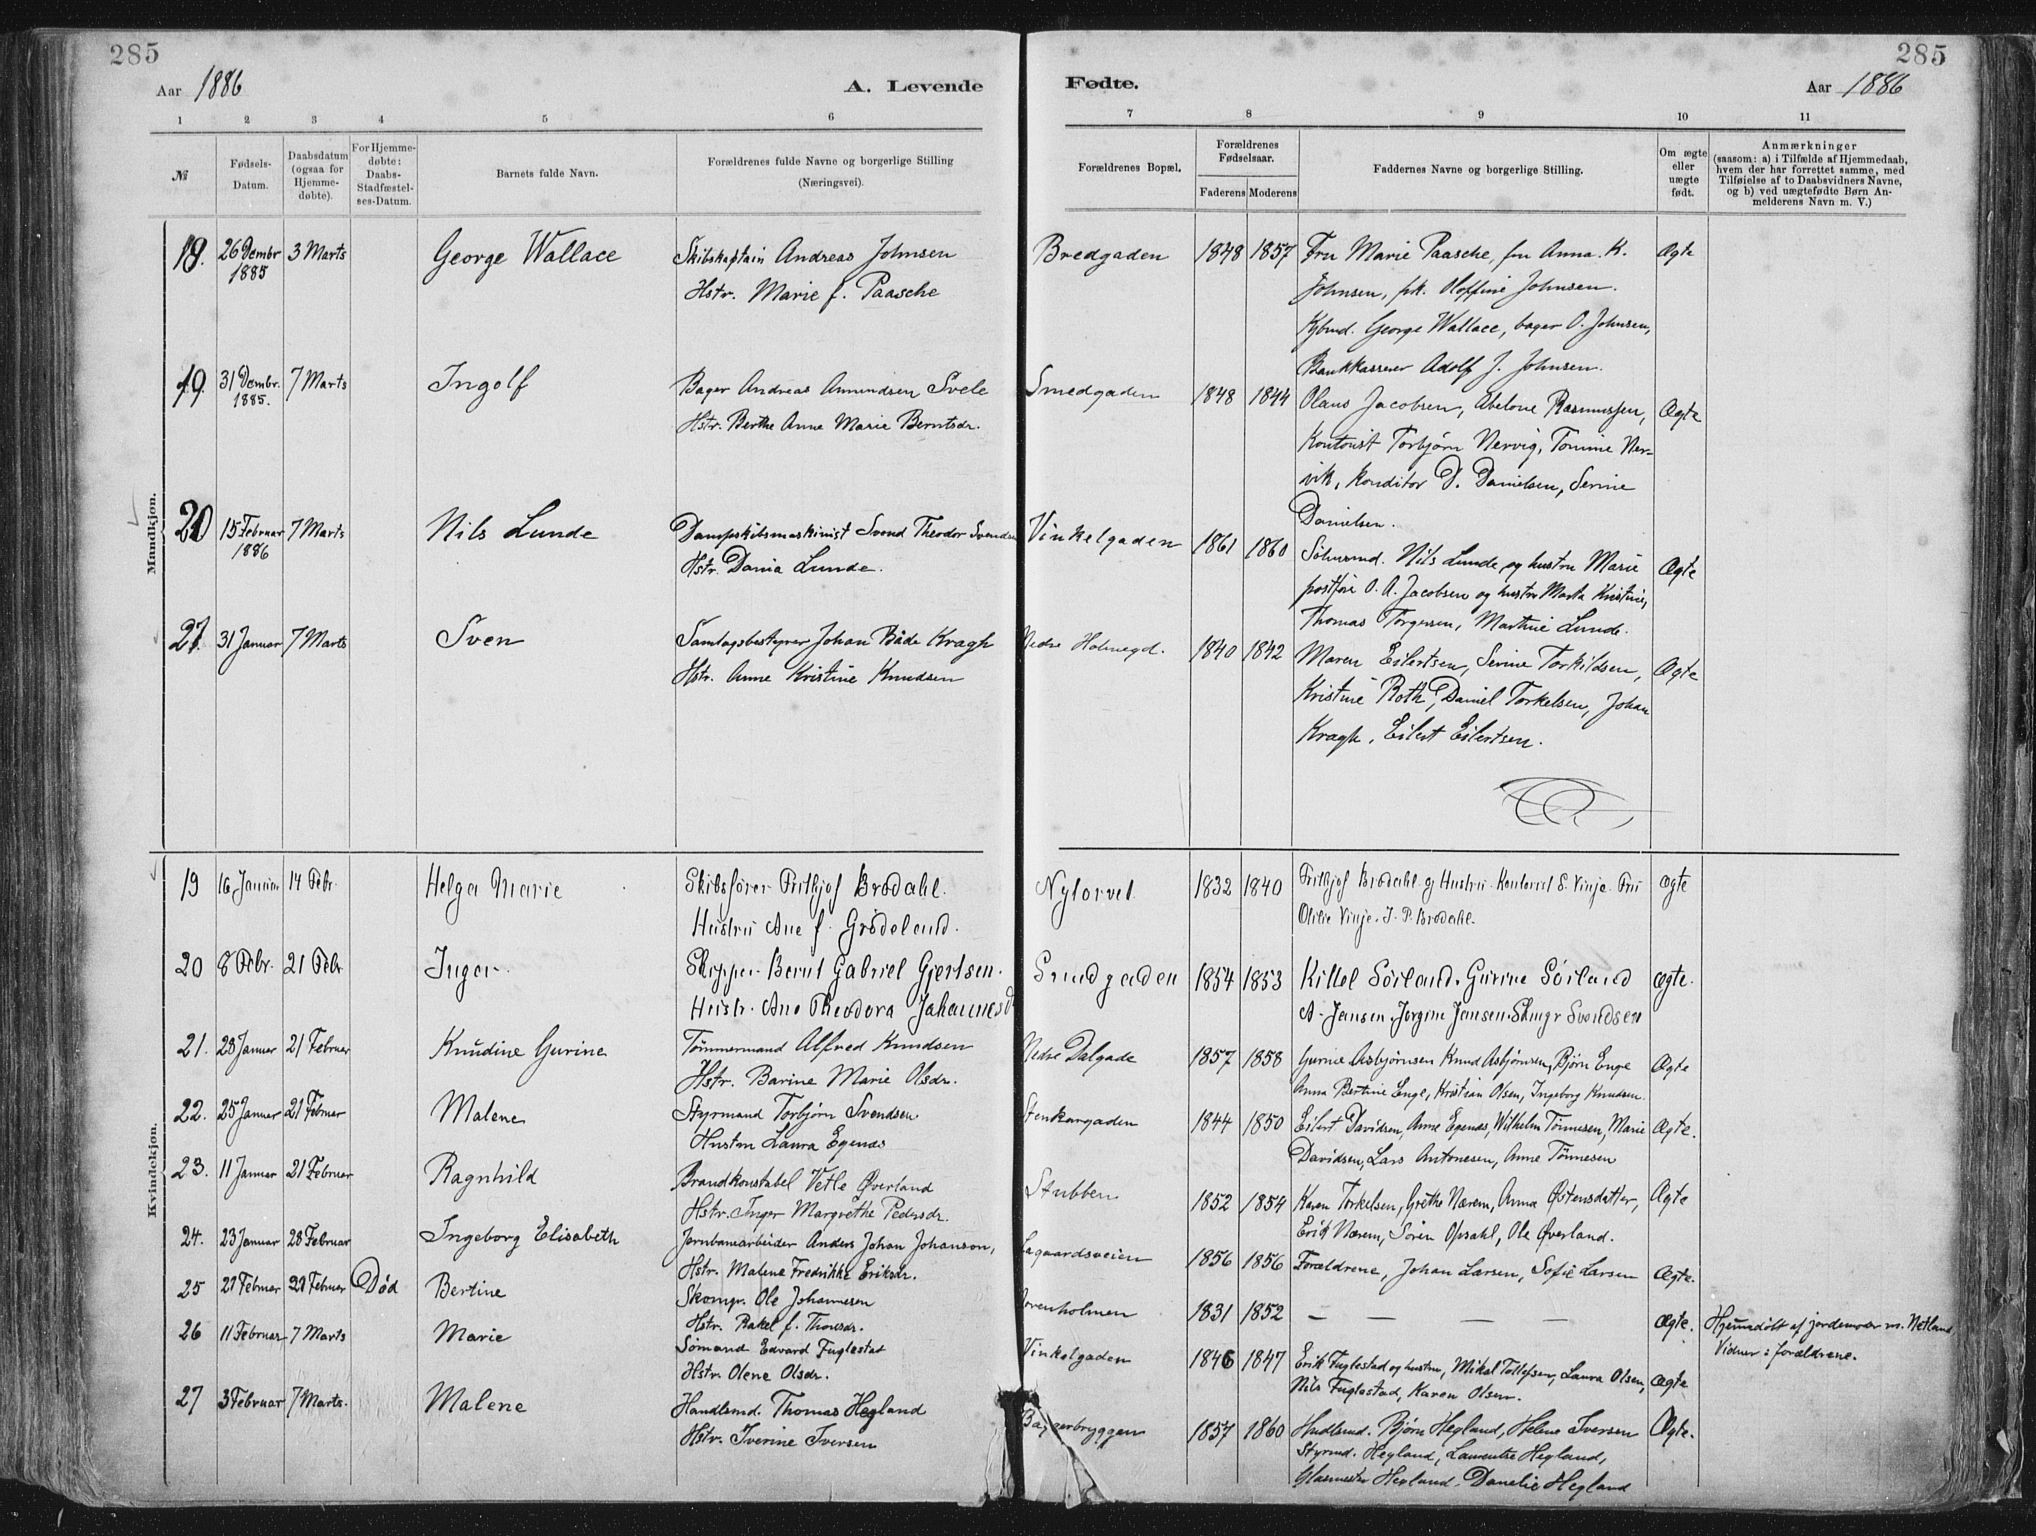 285
285
Aar 1886
A. Levende
Fødte.
Aar 1886
1 2 3 4 5 6 7 8 9 10 11
№
Fødsels-
Datum.
Daabsdatum
(ogsaa for
Hjemme-
døbte).
For Hjemme-
døbte:
Daabs-
Stadfæstel-
ses-Datum.
Barnets fulde Navn.
Forældrenes fulde Navne og borgerlige Stilling
(Næringsvei).
Forældrenes Bopæl.
Forældrenes
Fødselsaar.
Faderens Moderens
Faddernes Navne og borgerlige Stilling.
Om ægte
eller
uægte
født.
Anmærkninger
(saasom: a) i Tilfælde af Hjemmedaab,
hvem der har forrettet samme, med
Tilføielse af to Daabsvidners Navne,
og b) ved uægtefødte Børn An-
melderens Navn m. V.)
Mandkjøn.
18. 26 Dembr 3 Marts George Wallace Skibskaptain Andreas Johnsen Bredgaden 1848 1857 Fru Marie Paasche, fru Anna. K. Ægte
1885 Hstr. Marie f. Paasche Johnsen, frk. Johnsen.
Kjbmd. George Wallace, bager O. Johnsen,
Bankkasserer Adolf J. Johnsen.
19. 31 Dembr. 7 Marts Ingolf Bager Andreas Amundsen Svele Smedgaden 1848 1844 Olaus Jacobsen, Abelone Rasmussen, Ægte
1885. Hstr. Berthe Anne Marie Berntsdr. Kontorist Torbjørn Nervig, Tomine Ner-
vik, konditor D. Danielsen, Serine
Danielsen.
20 15 Februar 7 Marts Nils Lunde Dampskibsmaskinist Svend Theodor Svendsen Vinkelgaden 1861 1860 Nils Lunde og hustru Marie Ægte
1886 Hstr. Dania Lunde. O. A. Jacobsen og hustru Marta Kristine,
Thomas Torgersen, Martine Lunde.
21. 31 Januar 7 Marts Sven Samlagsbestyrer Johan Både Kragh Nedre Holmegd. 1840 1842 Maren Eilertsen, Serine Torkildsen, Ægte
Hstr. Anne Kristine Knudsen Kristine Roth, Daniel Torkelsen, Johan
Kragh, Eilert Eilertsen.
Kvindekjøn.
19 16 Januar 14 Febr. Helga Marie Skibsfører Fritkjof Brodahl. Nytorvet 1832 1840 Fritkjof Brodahl og Hustru. Kontorist S. Vinje. Fru Ægte
Hustru Ane f. Grødeland. Olilie Vinje. J. P. Brodahl.
20 8 Febr. 21 Febr. Inger Skipper Bernt Gabriel Gjertsen. Smedgaden 1854 1853 Kittel Sörland. Gurine Sörland Ægte.
Hustr. Ane Theodora Johannesd A. Jansen, Jorgine Jansen. Svendsen
21. 28 Januar 21 Februar Knudine Gurine Tømmermand Alfred Knudsen Nedre Dalgade 1857 1858 Gurine Asbjørnsen Knud Asbjørnsen, Bjørn Enge Ægte
Hstr. Barine Marie Olsdr. Anna Bertine Enge, Kristian Olsen, Ingeborg Knudsen.
22. 25 Januar 21 Februar Malene Styrmand Torbjørn Svendsen Stenkargaden 1844 1850 Eilert Davidsen, Anne Egenæs, Wilhelm Tønnesen, Marie Ægte.
Hustru Laura Egenæs Davidsen, Lars Antonesen, Anne Tønnesen
23. 11 Januar 21 Februar Ragnhild Brandkonstabel Vetle Øverland Stubben 1852 1854 Karen Torkelsen, Grethe Nærem, Anna Østensdatter, Ægte
Hstr. Inger Margrethe Pedersdr. Erik Nærem, Søren Opsahl, Ole Øverland.
24. 23 Januar 28 Februar Ingeborg Elisabeth Jernbanearbeider Anders Johan Johanson, Lagaardsveien 1856 1856 Forældrene, Johan Larsen, Sofie Larsen Ægte.
Hstr. Malene Fredrikke Eriksdr.
25 27 Februar Februar Død Bertine Skomgr. Ole Johannesen 1831 1852 — — — — Ægte. Hjemmedøbt af jordemoder m. Netland
Hstr. Rakel f. Vidner: forældrene.
26 11 Februar 7 Marts Marie Sømand Edvard Fuglestad Vinkelgaden 1846 1847 Erik Fuglestad og hustru, Mikal Tollefsen, Laura Olsen, Ægte
Hstr. Olene Olsdr. Nils Fuglestad, Karen Olsen.
27 3 Februar 7 Marts. Malene Handlsmd. Thomas Hegland 1857 1860 Hndlsmd. Bjørn Hegland, Helene Iversen Ægte.
Hstr. Iverine Iversen Styrmd. Hegland, Laurentse Hegland,
Glasmester Hegland. Danelie Hegland